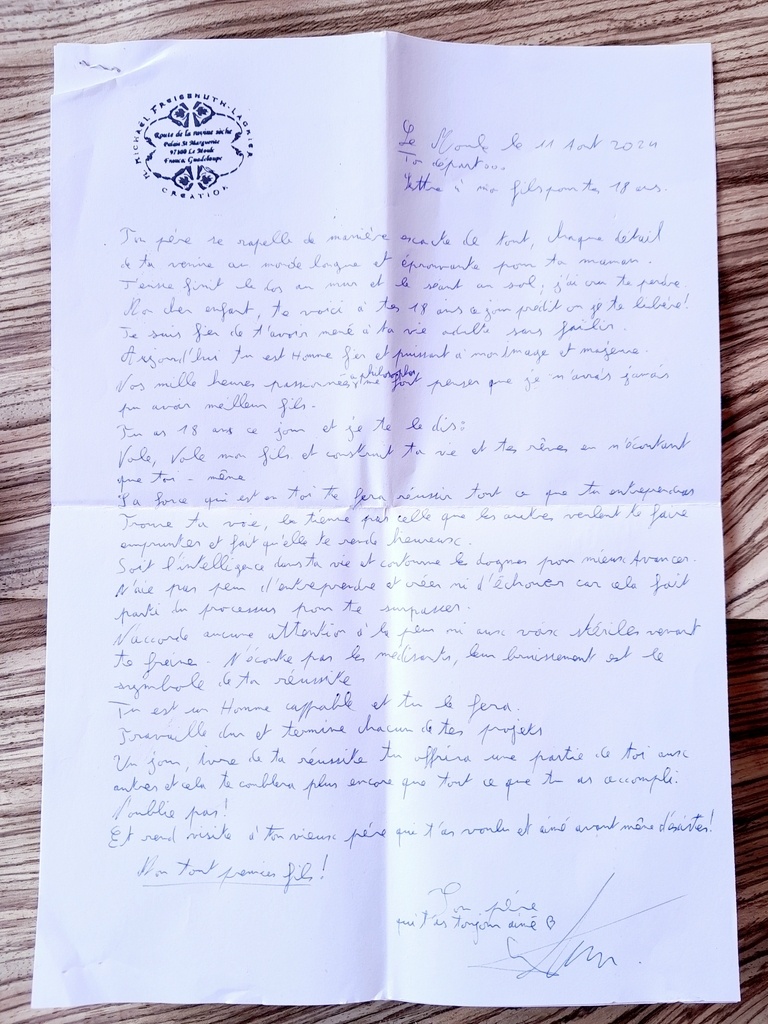 MICHAËL FREIGENUTH-LAGRIER
Route de la ravine sèche
Palais St Marguerite
97160 Le Moule
France, Guadeloupe
CREATION
Le Moule le 11 Aout 2024
Ton départ...
lettre à mon fils pour tes 18 ans.
Ton père se rapelle de manière exacte de tout, chaque détail
de ta venue au monde longue et éprouvante pour ta maman.
J'ensse finit le dos au mur et le séant au sol, j'ai cru te perdre.
Mon cher enfant, te voici à tes 18 ans ce jour prédit où je te libère!
Je suis fier de t'avoir mené à ta vie adulte sans faillir.
Aujourd'hui tu est Homme fier et puissant à mon image et mazerne.
Vos mille heures passionnées a philosopher me font penser que je n'aurais jamais
pu avoir meilleur fils.
Tu as 18 ans ce jour et je te le dis:
Vole, Vole mon fils et construit ta vie et tes rêves en n'écoutant
que toi-même
La force qui est en toi te fera réussir tout ce que tu entreprendras
Trouve ta voie, la tienne pas celle que les autres veulent te faire
emprunter et fait qu'elle te rende heureux.
Soit l'intelligence dans ta vie et contourne les dogmes pour mieux Avancer.
N'aie pas peur d'entreprendre et créer ni d'échouer car cela fait
parti du processus pour te surpasser.
N'accorde aucune attention à la peur ni aux voix stériles venant
te freiner. N'écoute pas les médisants, leur bruissement est le
symbole de ta réussite
Tu est un Homme cappable et tu le fera.
Travaille dur et termine chacun de tes projets
Un jour, ivre de ta réussite tu offrira une partie de toi aux
autres et cela te comblera plus encore que tout ce que tu as accompli.
N'oublie pas!
Et rend visite à ton vieux père qui t'as voulu et aimé avant même d'exister!
Mon tout premier fils!
Ton père
qui t'as toujours aimé ♡